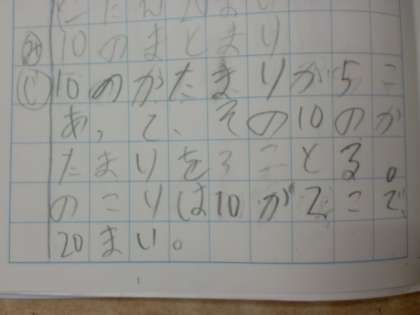 み 10のまとまり
じ 10のかたまりが5こ
あって、その10のか
たまりを3ことる。
のこりは10が2こで、
20まい。